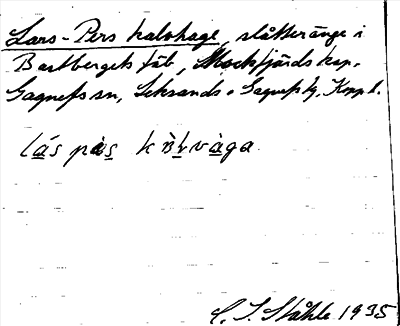 Lars-Pers kalvhage, slåtteränge i
Bastbergets fäb, Mockfjärds kap.
Gagnefs sn, Leksands o Gagnefs tg, Kopp. l.
lás pàs kàlvàga
C. I. Ståhle 1935